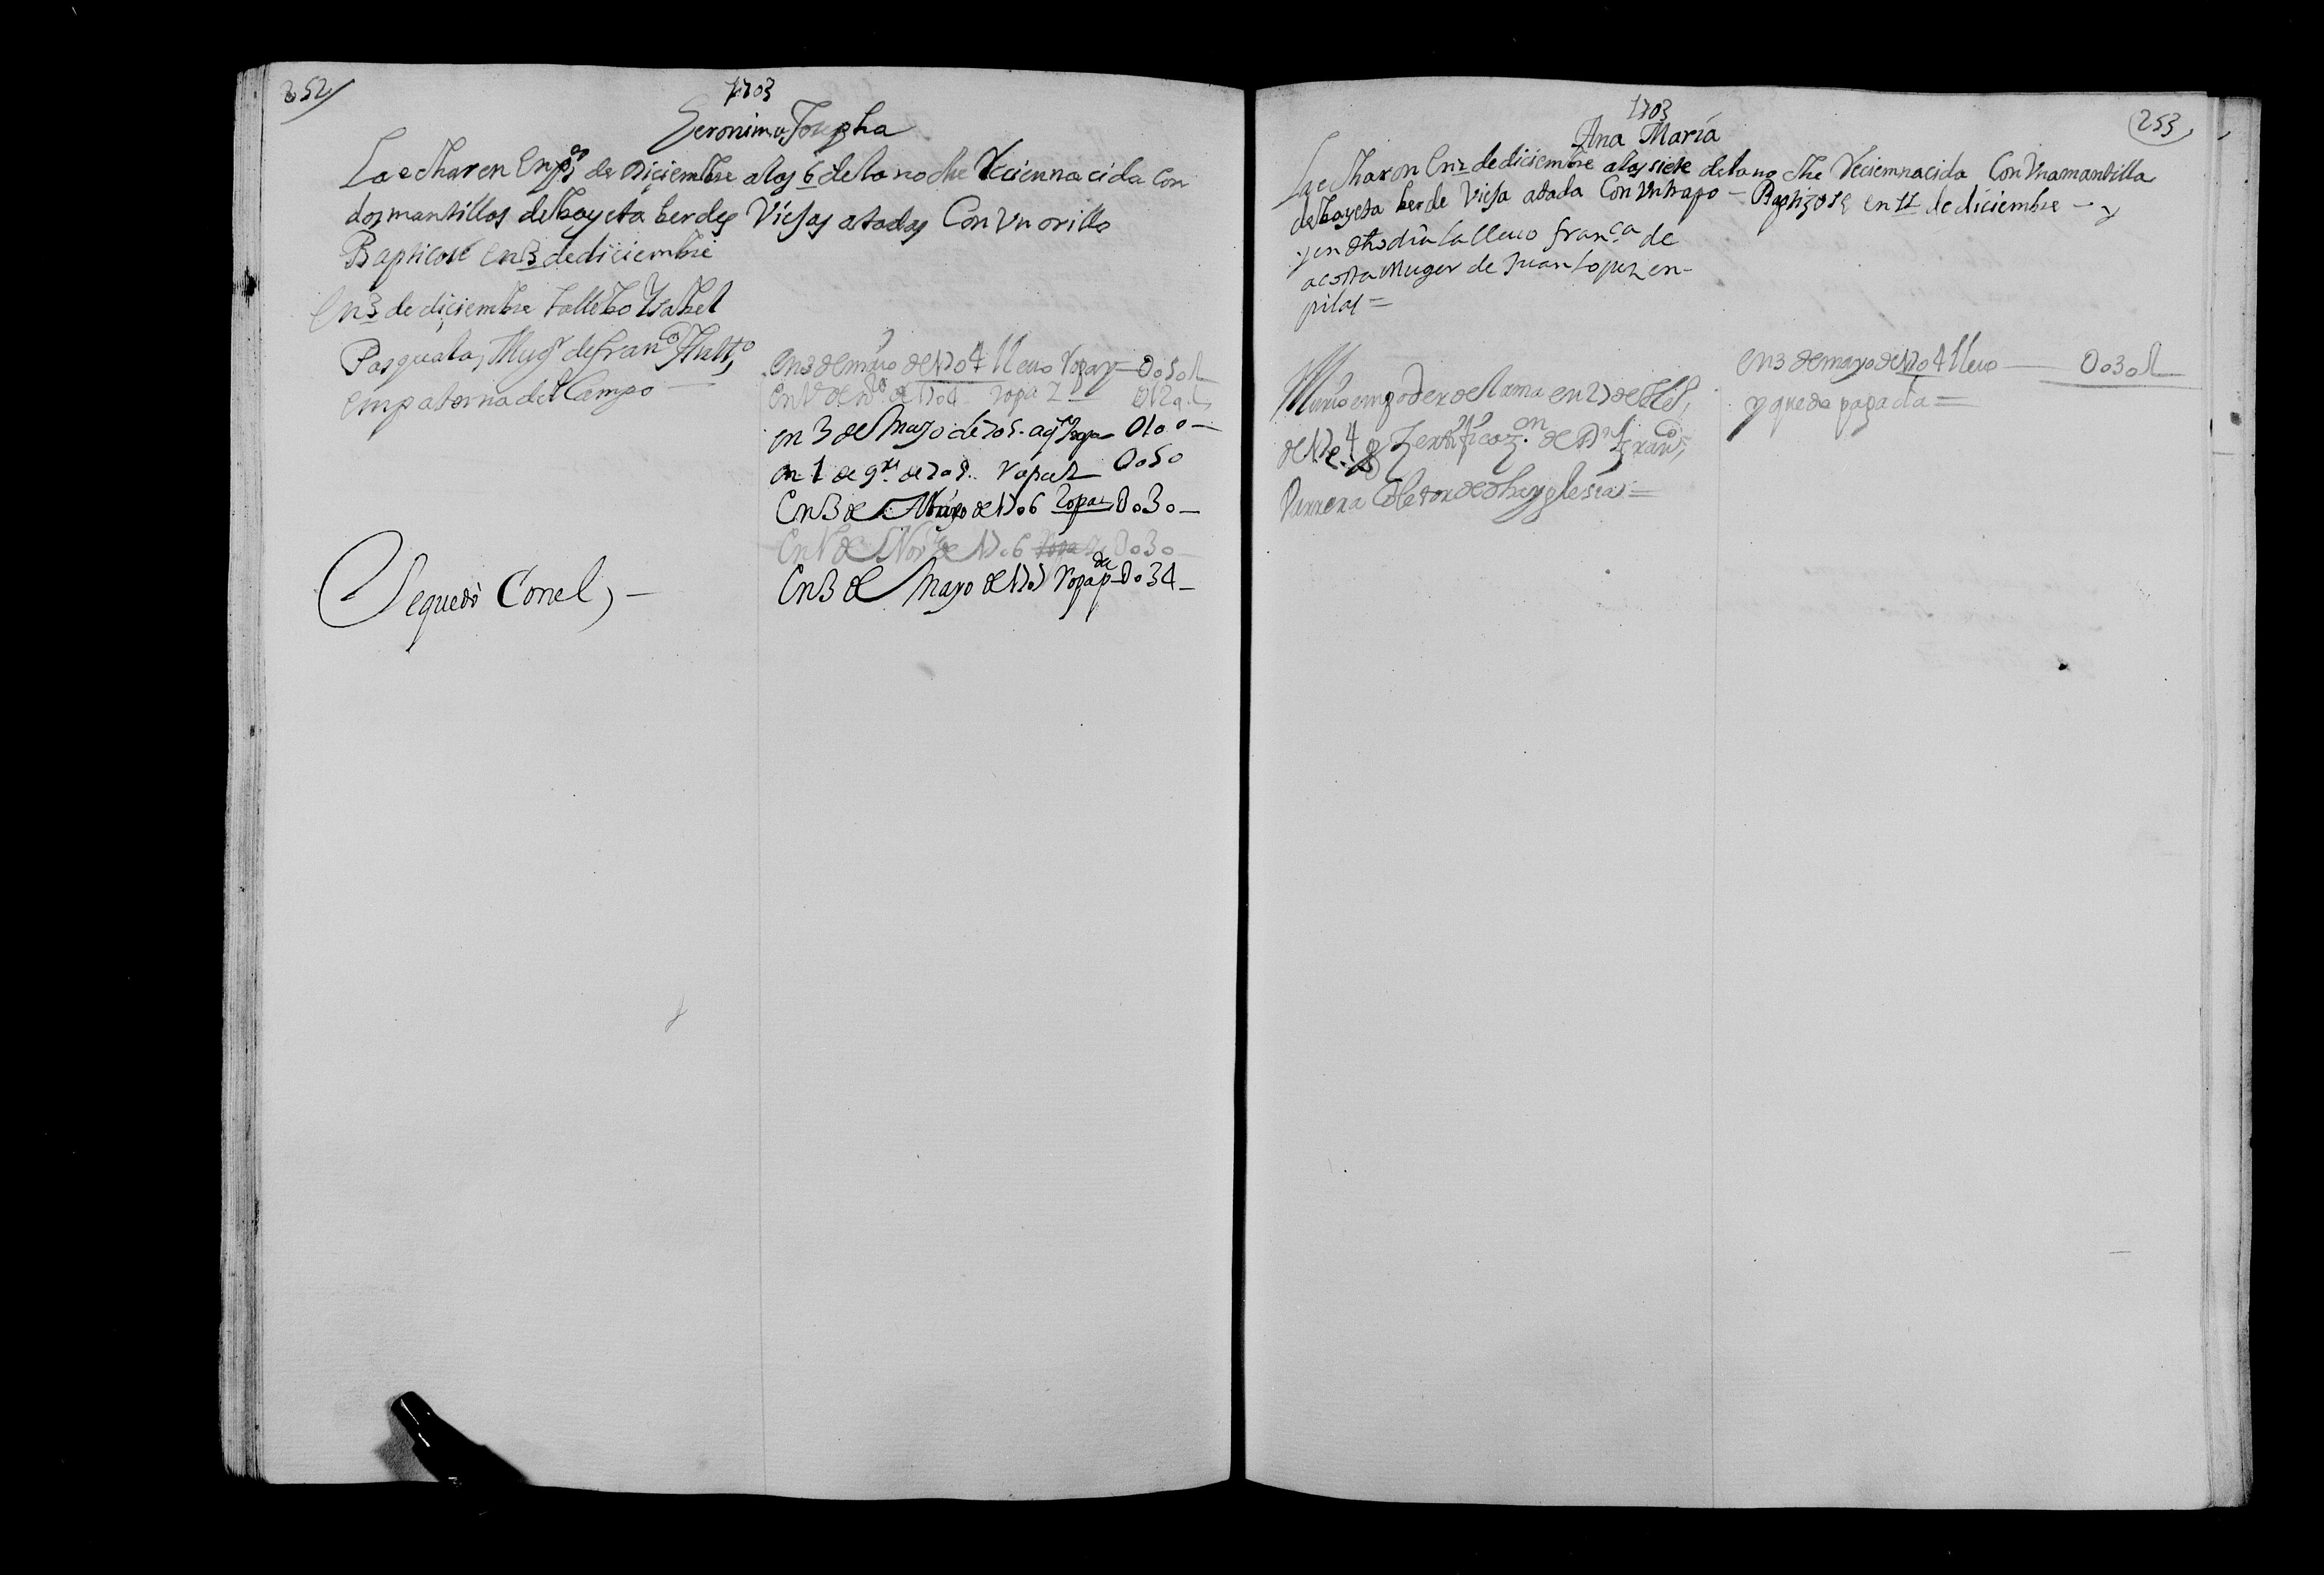 252/
1703
Geronima Josepha
La echaron en pro de Diciembre a las 6 de la noche Reciennacida Con
dos mantillas de bayeta berdes Viejas atadas Con Vn orillo
Bapticose en 3 de diciembre
En 3 de diciembre la llebo Ysabel
Pasquala, Mugr de franco
en paterna del Campo
en 3 de mayo de 1704 lleuo Ropa y 0050
en 1 de de 1704 ropa
en 3 de Mayo de 705. 0100
en 1 de 9re de 705. ropa 0050
En 3 de Mayo de 1706 ropa 0030
En 1 de Nove de 1706 0030
En 3 de Mayo de 1707 ropa pda 0034
Sequedò Conel,
1703
253
Ana María
La echaron En 2 de diciembre a las siete de la noche Reciemnacida Con Vna mantilla
de bayeta berde Vieja atada Con Vn trapo - Baptizose en 11 de diciembre
y en dho dia la lleuo franca de
acosta Muger de Juan Lopez en
pilas =
Murio em poder del ama en 27 de
de 1704 Zertificazon de Dn franco
Barrera Coletor de dha yglesia =
en 3 de mayo de 1704 lleuo 0030
y queda pagada =